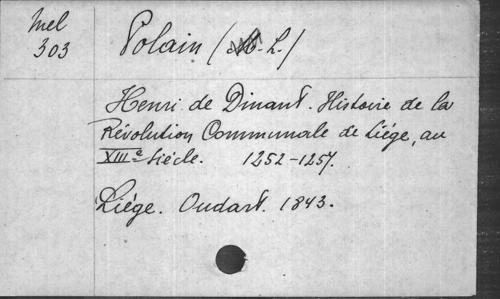 Mel
303
Polain (M.-L.)
Henri de Dinant. Histoire de la
Révolution Communale de Liége, au
XIIIe Siécle. 1252-1257.
Liége. Oudart. 1843.